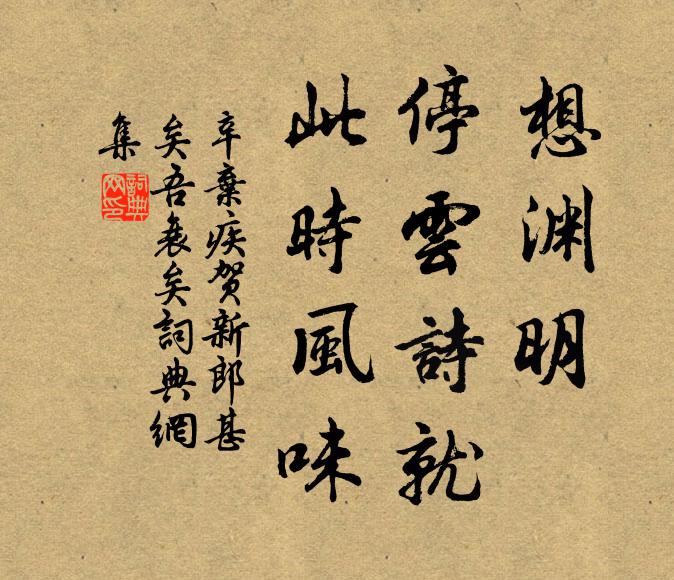 想渊明
停雲詩就
此時風味
辛棄疾賀新郎甚
矣吾衰矣詞典網
集
詞典
网印